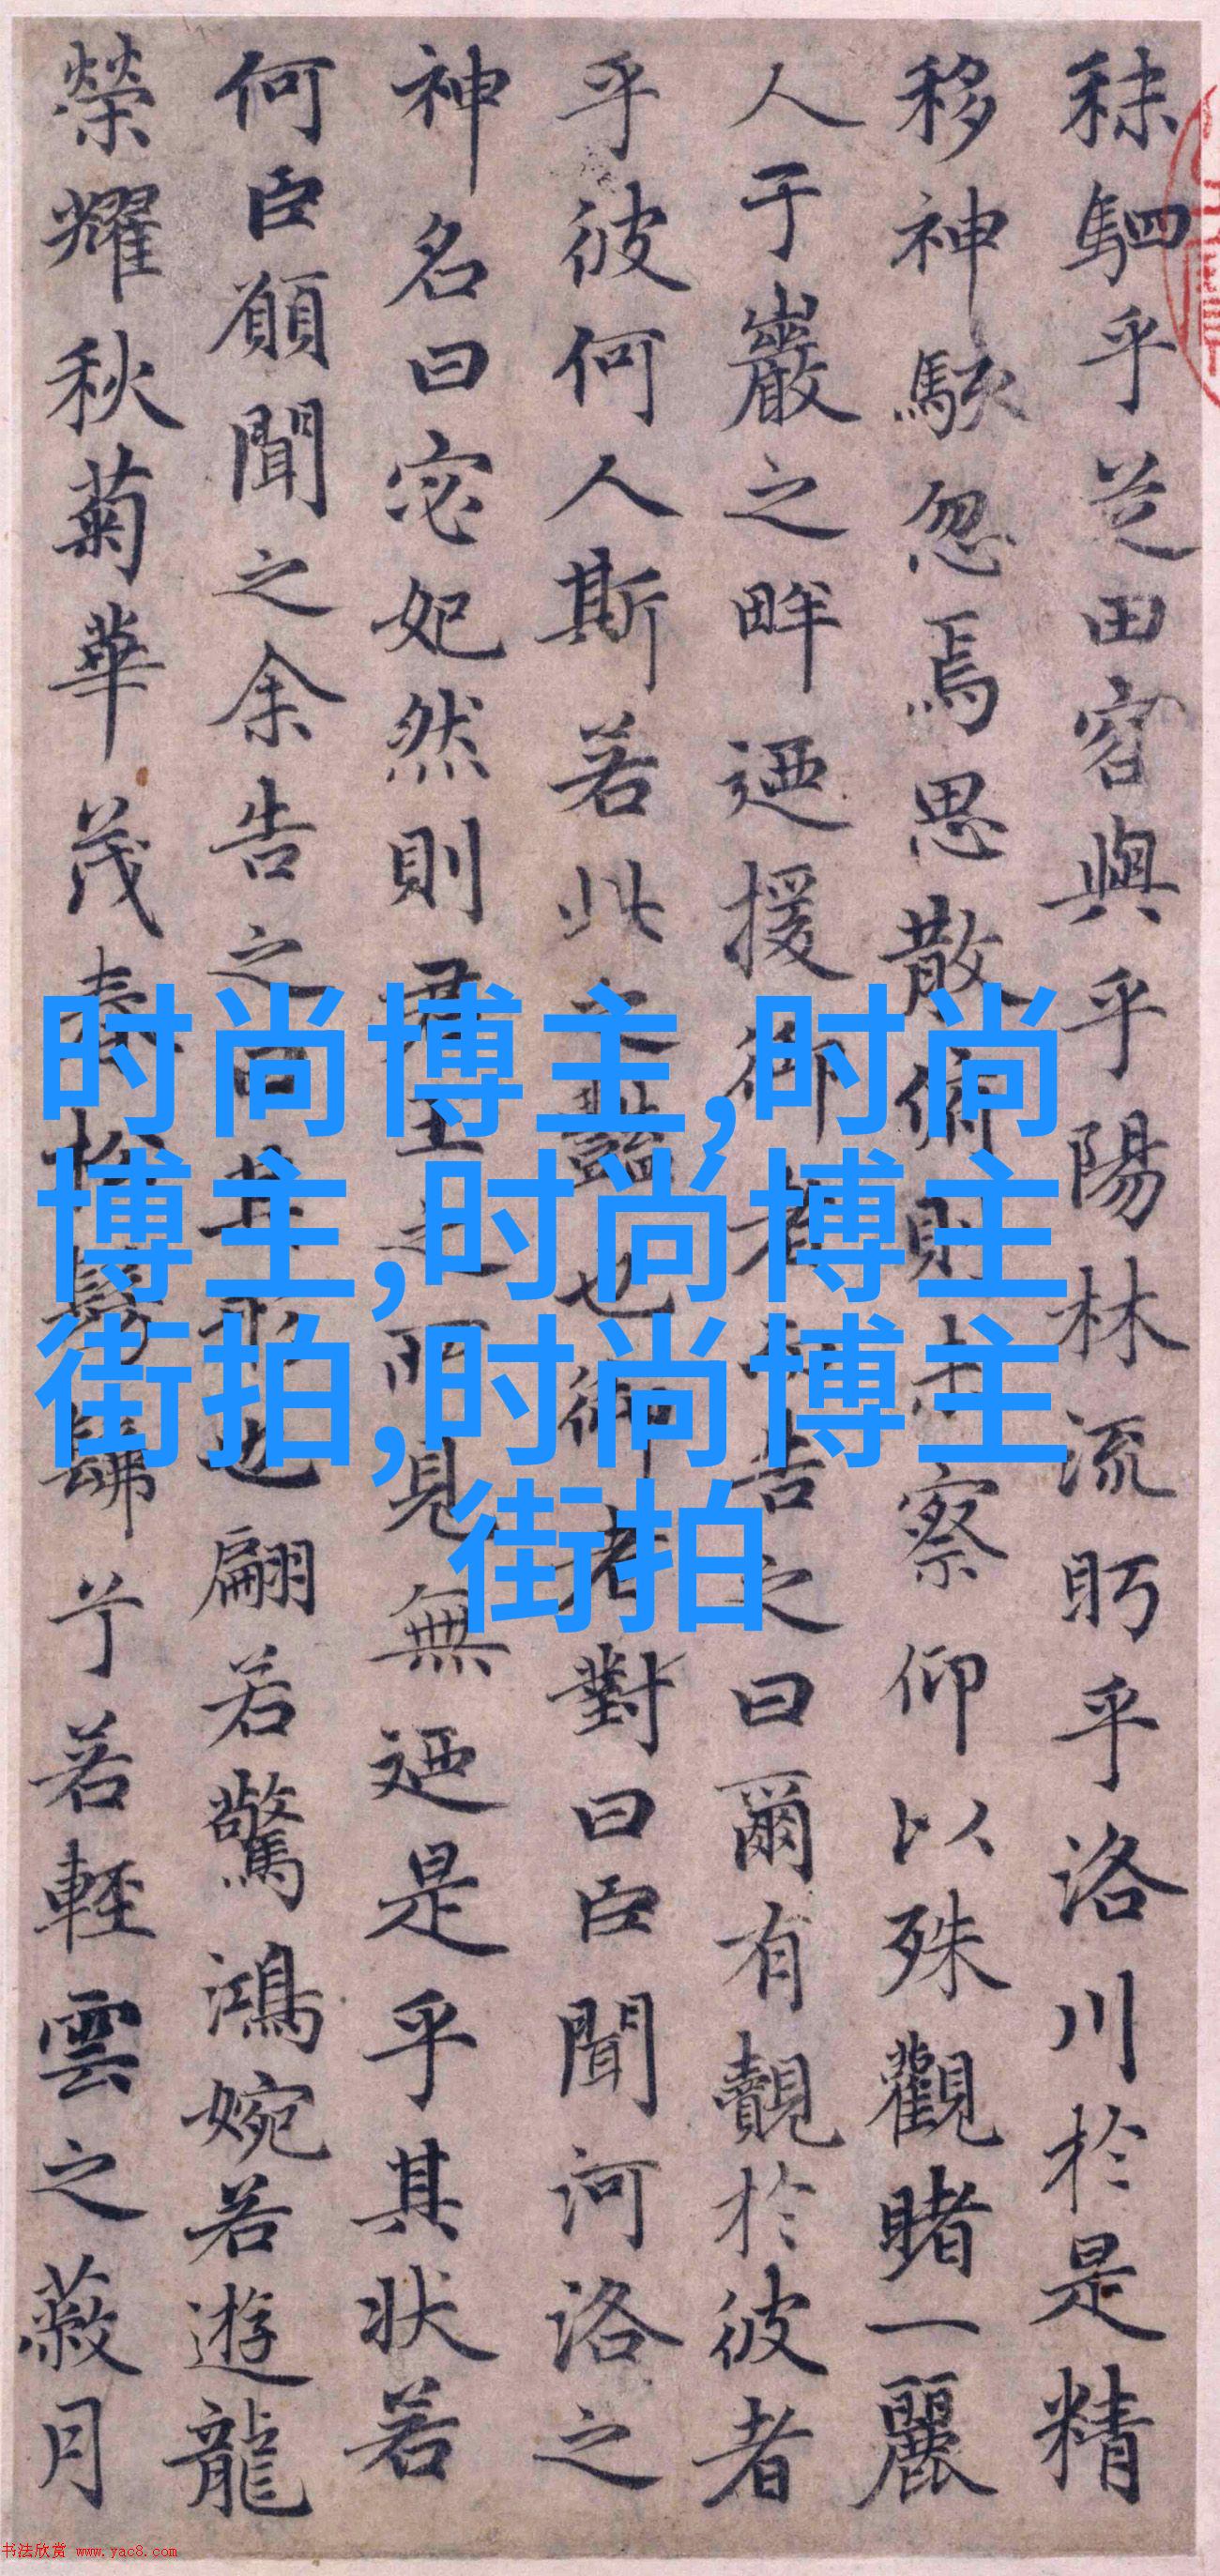 秣駟乎芝田容與乎陽林流眄乎洛川於是精
移神駭忽焉思散俯則未察仰以殊觀睹一麗
人于巖之畔迺援御者而告之曰爾有覿於彼者
乎彼何人斯若此之豔也御者對曰臣聞河洛之
神名曰宓妃然則君王之所見無迺是乎其狀若
何臣願聞之余告之曰其形也翩若驚鴻婉若遊龍
榮耀秋菊華茂春松髣髴兮若輕雲之蔽月
时尚博主,时尚
博主,时尚博主
街拍,时尚博主
街拍
书法欣赏 www.yac8.com